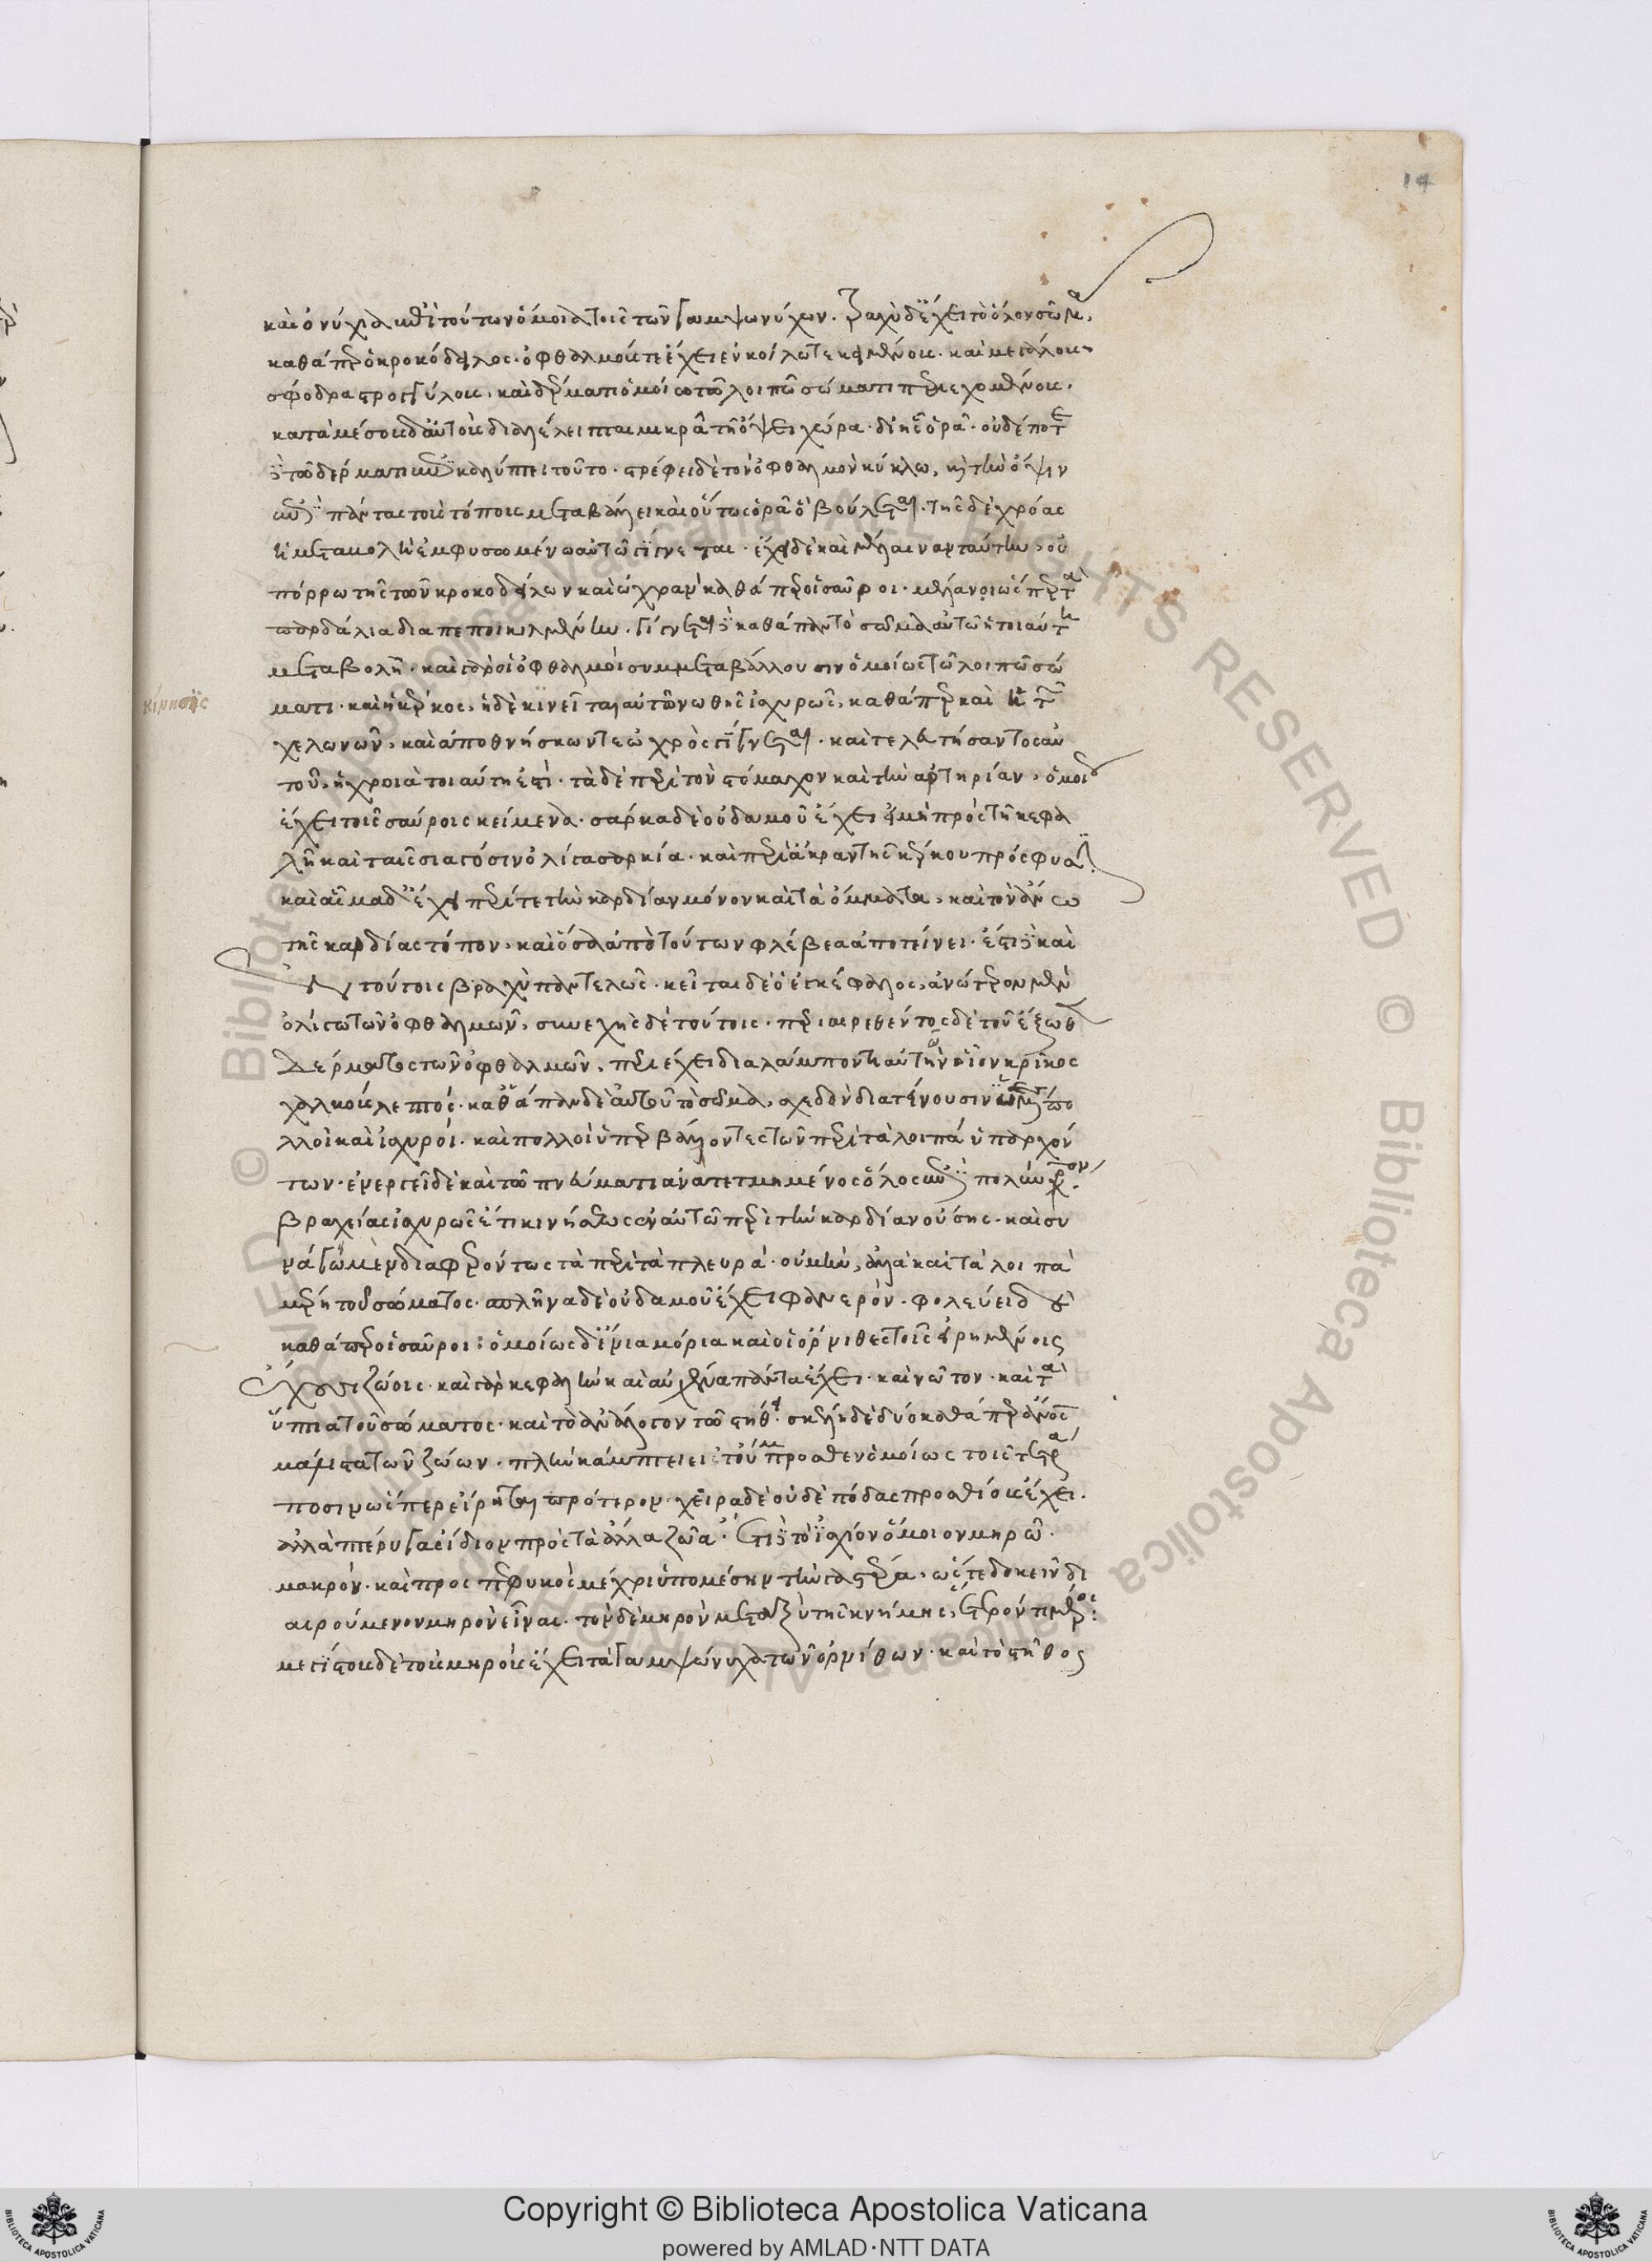 14
καὶ ὀνύχια ἐπὶ τούτων ὅμοια τοῖς τῶν γαμψωνύχων. τραχὺ δ' ἔχει τὸ ὅλον σῶμα,
καθάπερ ὁ κροκόδειλος. ὀφθαλμοὺς τε ἔχει ἐν κοίλω τε κειμένους. καὶ μεγάλους
σφόδρα στρογγύλους. καὶ δέρματι ὁμοίω τῶ λοιπῶ σώματι περιεχομένους.
κατὰ μέσους δ' αὐτοὺς διαλέλειπται μικρὰ τῆ ὄψει χώρα. δι' ἧς ὁρᾶ. οὐδέποτε
δὲ τῶ δέρματι καλύπτει τοῦτο. στρέφει δὲ τὸν ὀφθαλμὸν κύκλω, καὶ τὴν ὄψιν
ἐπὶ πάντας τοὺς τόπους μεταβάλλει καὶ οὕτως ὁρᾶ ὃ βούλεται. τῆς δὲ χρόας
ἡ μεταβολὴ ἐμφυσωμένω αὐτῶ γίγνεται. ἔχει δὲ καὶ μέλαιναν ταύτην, οὐ
πόρρω τῆς τῶν κροκοδείλων καὶ ὠχρὰν καθάπερ οἱ σαῦροι. μέλανι ὥσπερ τὰ
παρδάλια διαπεποικιλμένην. γίγνεται δὲ καθ' ἅπαν τὸ σῶμα αὐτῶ ἡ τοιαύτη
μεταβολή. καὶ γὰρ οἱ ὀφθαλμοὶ συμμεταβάλλουσιν ὁμοίως τῶ λοιπῶ σώ
κίνησις
ματι. καὶ ἡ κέρκος, ἡ δὲ κινεῖται αὐτῶ νωθὴς ἰσχυρῶς, καθάπερ καὶ ἡ τῶν
χελωνῶν, καὶ ἀποθνήσκων τε ὠχρὸς γίγνεται. καὶ τελευτήσαντος αὐ
τοῦ, ἡ χροιὰ τοιαύτη ἐστί. τὰ δὲ περὶ τὸν στόμαχον καὶ τὴν ἀρτηρίαν, ὁμοίως
ἔχει τοῖς σαύροις κείμενα. σάρκα δὲ οὐδαμοῦ ἔχει εἰ μὴ πρὸς τῆ κεφα
λῆ καὶ ταῖς σιαγόσιν ὀλίγα σαρκία. καὶ περὶ ἄκραν τῆς κέρκου πρόσφυσιν
καὶ αἷμα δ' ἔχει περί τε τὴν καρδίαν μόνον καὶ τὰ ὄμματα, καὶ τὸν ἄνω
τῆς καρδίας τόπον, καὶ ὅσα ἀπὸ τούτων φλέβεα ἀποτείνει. ἔστι δὲ καὶ
ἐν τούτοις βραχὺ παντελῶς. κεῖται δὲ ὁ ἐγκέφαλος, ἀνώτερον μὲν
ὀλίγω τῶν ὀφθαλμῶν, συνεχὴς δὲ τούτοις. περιαιρεθέντος δὲ τοῦ ἔξωθεν
δέρματος τῶν ὀφθαλμῶν, περιέχει διαλάμπον τι αὐτῶν οἷον κρίκος
χαλκοῦς λεπτός. καθ' ἅπαν δὲ αὐτοῦ τὸ σῶμα, σχεδὸν διατείνουσιν ὑμένες πο
λλοὶ καὶ ἰσχυροί. καὶ πολλοὶ ὑπερβάλλοντες τῶν περὶ τὰ λοιπὰ ὑπαρχόν
των. ἐνεργεῖ δὲ καὶ τῶ πνεύματι ἀνατετμημένος ὅλος ἐπὶ πολὺν χρόνον.
βραχείας ἰσχυρῶς ἔτι κινήσεως ἐν αὐτῶ περὶ τὴν καρδίαν οὔσης. καὶ συ
νάγων μὲν διαφερόντως τὰ περὶ τὰ πλευρά. οὐ μὴν, ἀλλὰ καὶ τὰ λοιπὰ
μέρη τοῦ σώματος. σπλῆνα δὲ οὐδαμοῦ ἔχει φανερόν. φολεύει δὲ
καθάπερ οἱ σαῦροι: ὁμοίως δ' ἔνια μόρια καὶ οἱ ὄρνιθες τοῖς εἰρημένοις
ἔχουσι ζώοις. καὶ γὰρ κεφαλὴν καὶ αὐχένα πάντα ἔχει. καὶ νῶτον. καὶ τὰ
ὕπτια τοῦ σώματος. καὶ τὸ ἀνάλογον τῶ στήθει. σκέλη δὲ δύο καθάπερ ἄνθρωπος
μάλιστα τῶν ζώων. πλὴν κάμπτει εἰς τοὔμπροσθεν ὁμοίως τοῖς τετρά
ποσιν ὥσπερ εἴρηται πρότερον. χεῖρα δὲ οὐδὲ πόδας προσθίους ἔχει.
ἀλλὰ πτέρυγας ἴδιον πρὸς τὰ ἄλλα ζῶα. ἔτι δὲ τὸ ἰσχίον ὅμοιον μηρῶ.
μακρόν. καὶ προσπεφυκὸς μέχρι ὑπὸ μέσην τὴν γαστέρα. ὥστε δοκεῖν δι
αιρούμενον μηρὸν εἶναι. τὸν δὲ μηρὸν μεταξὺ τῆς κνήμης, ἕτερόν τι μέρος:
μεγίστους δὲ τοὺς μηροὺς ἔχει τὰ γαμψώνυχα τῶν ὀρνίθων. καὶ τὸ στῆθος
© Biblioteca Apostolica Vaticana ALL RIGHTS RESERVED
Copyright © Biblioteca Apostolica Vaticana
powered by AMLAD·NTT DATA